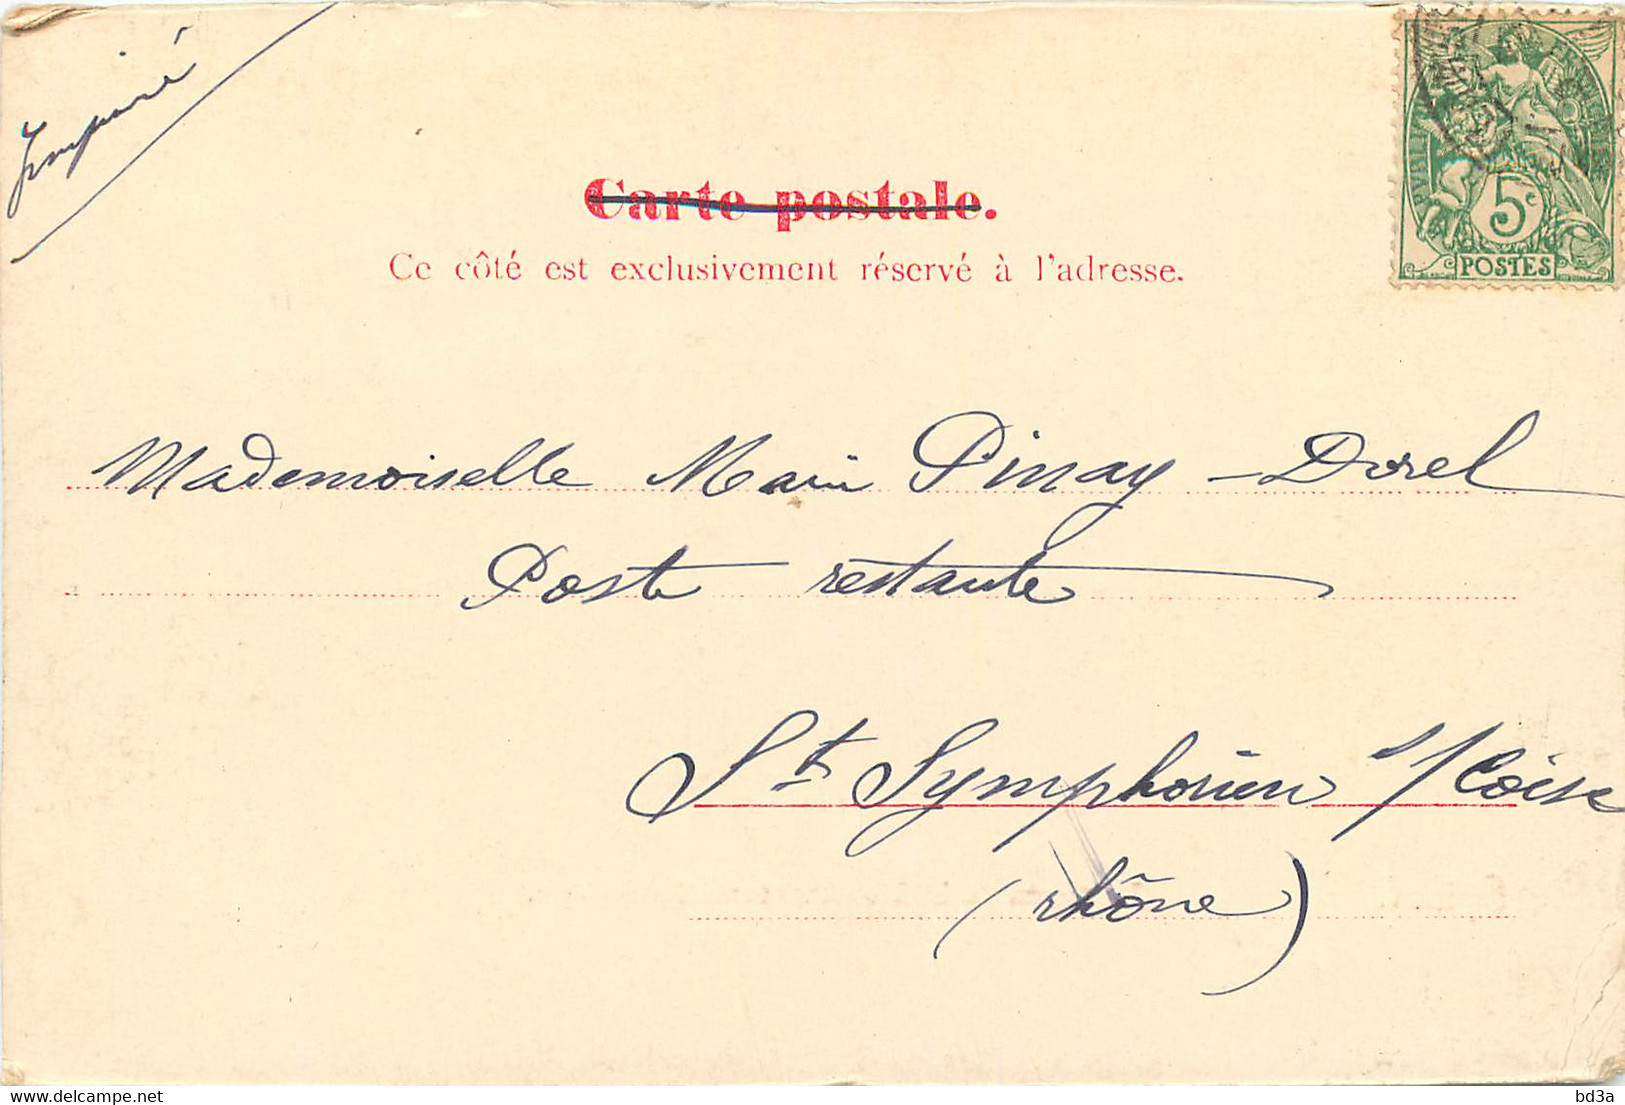 Imprimé
Carte postale.
Ce côté est exclusivement réservé à l'adresse.
5c
POSTES
Mademoiselle Marie Pinay-Dorel
Poste restante
St Symphorien s/Coise
(rhône)
delcampe.net
bd3a